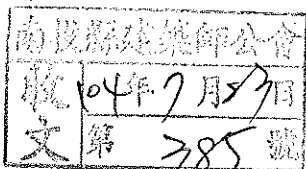 南投縣建築師公會
收文 104年7月23日
第 385 號